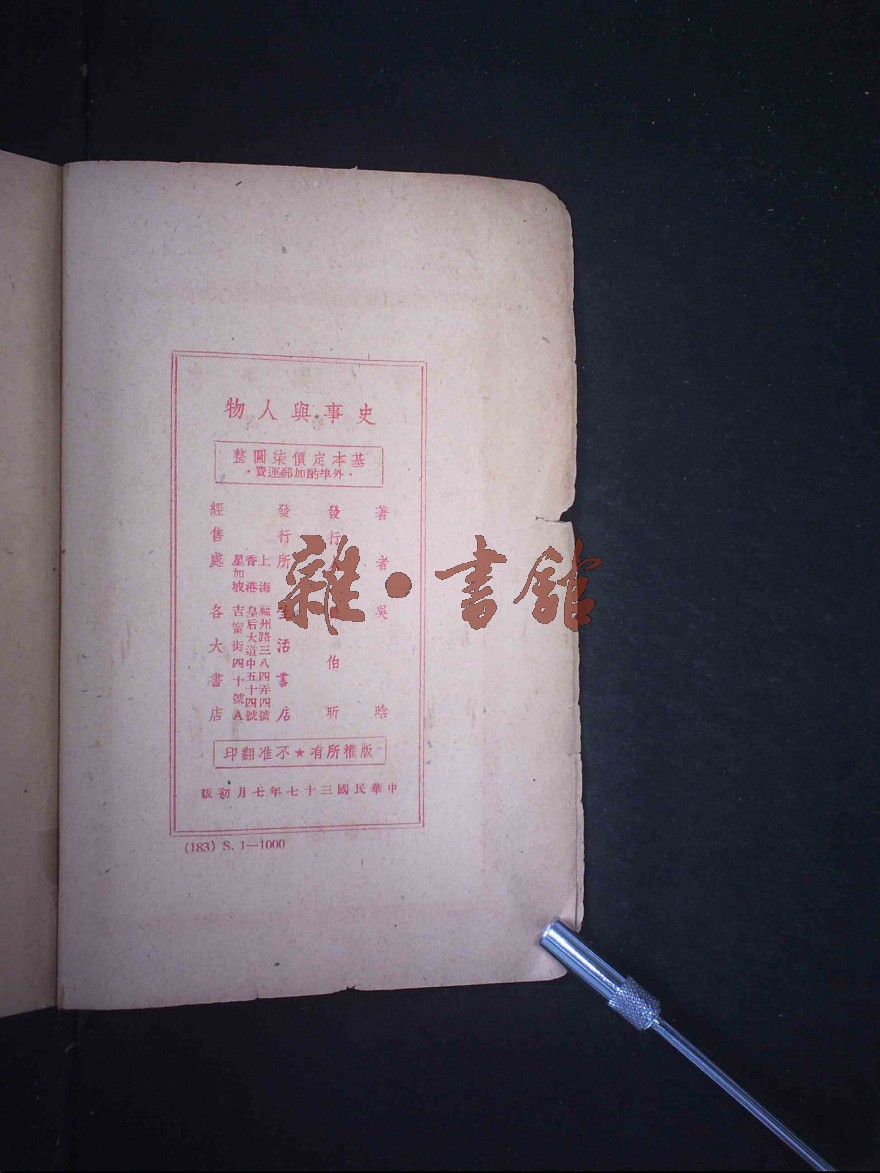 史事與人物
基本定價柒圓整
·外埠酌加郵運費·
著者 吳晗
發行 伯昕
發行所 生活書店
上海 福州路三八四弄四號
香港 皇后大道中五十四號
星加坡 吉甯街四十號A
經售處 各大書店
版權所有★不准翻印
中華民國三十七年七月初版
(183) S. 1—1000
雜·書館